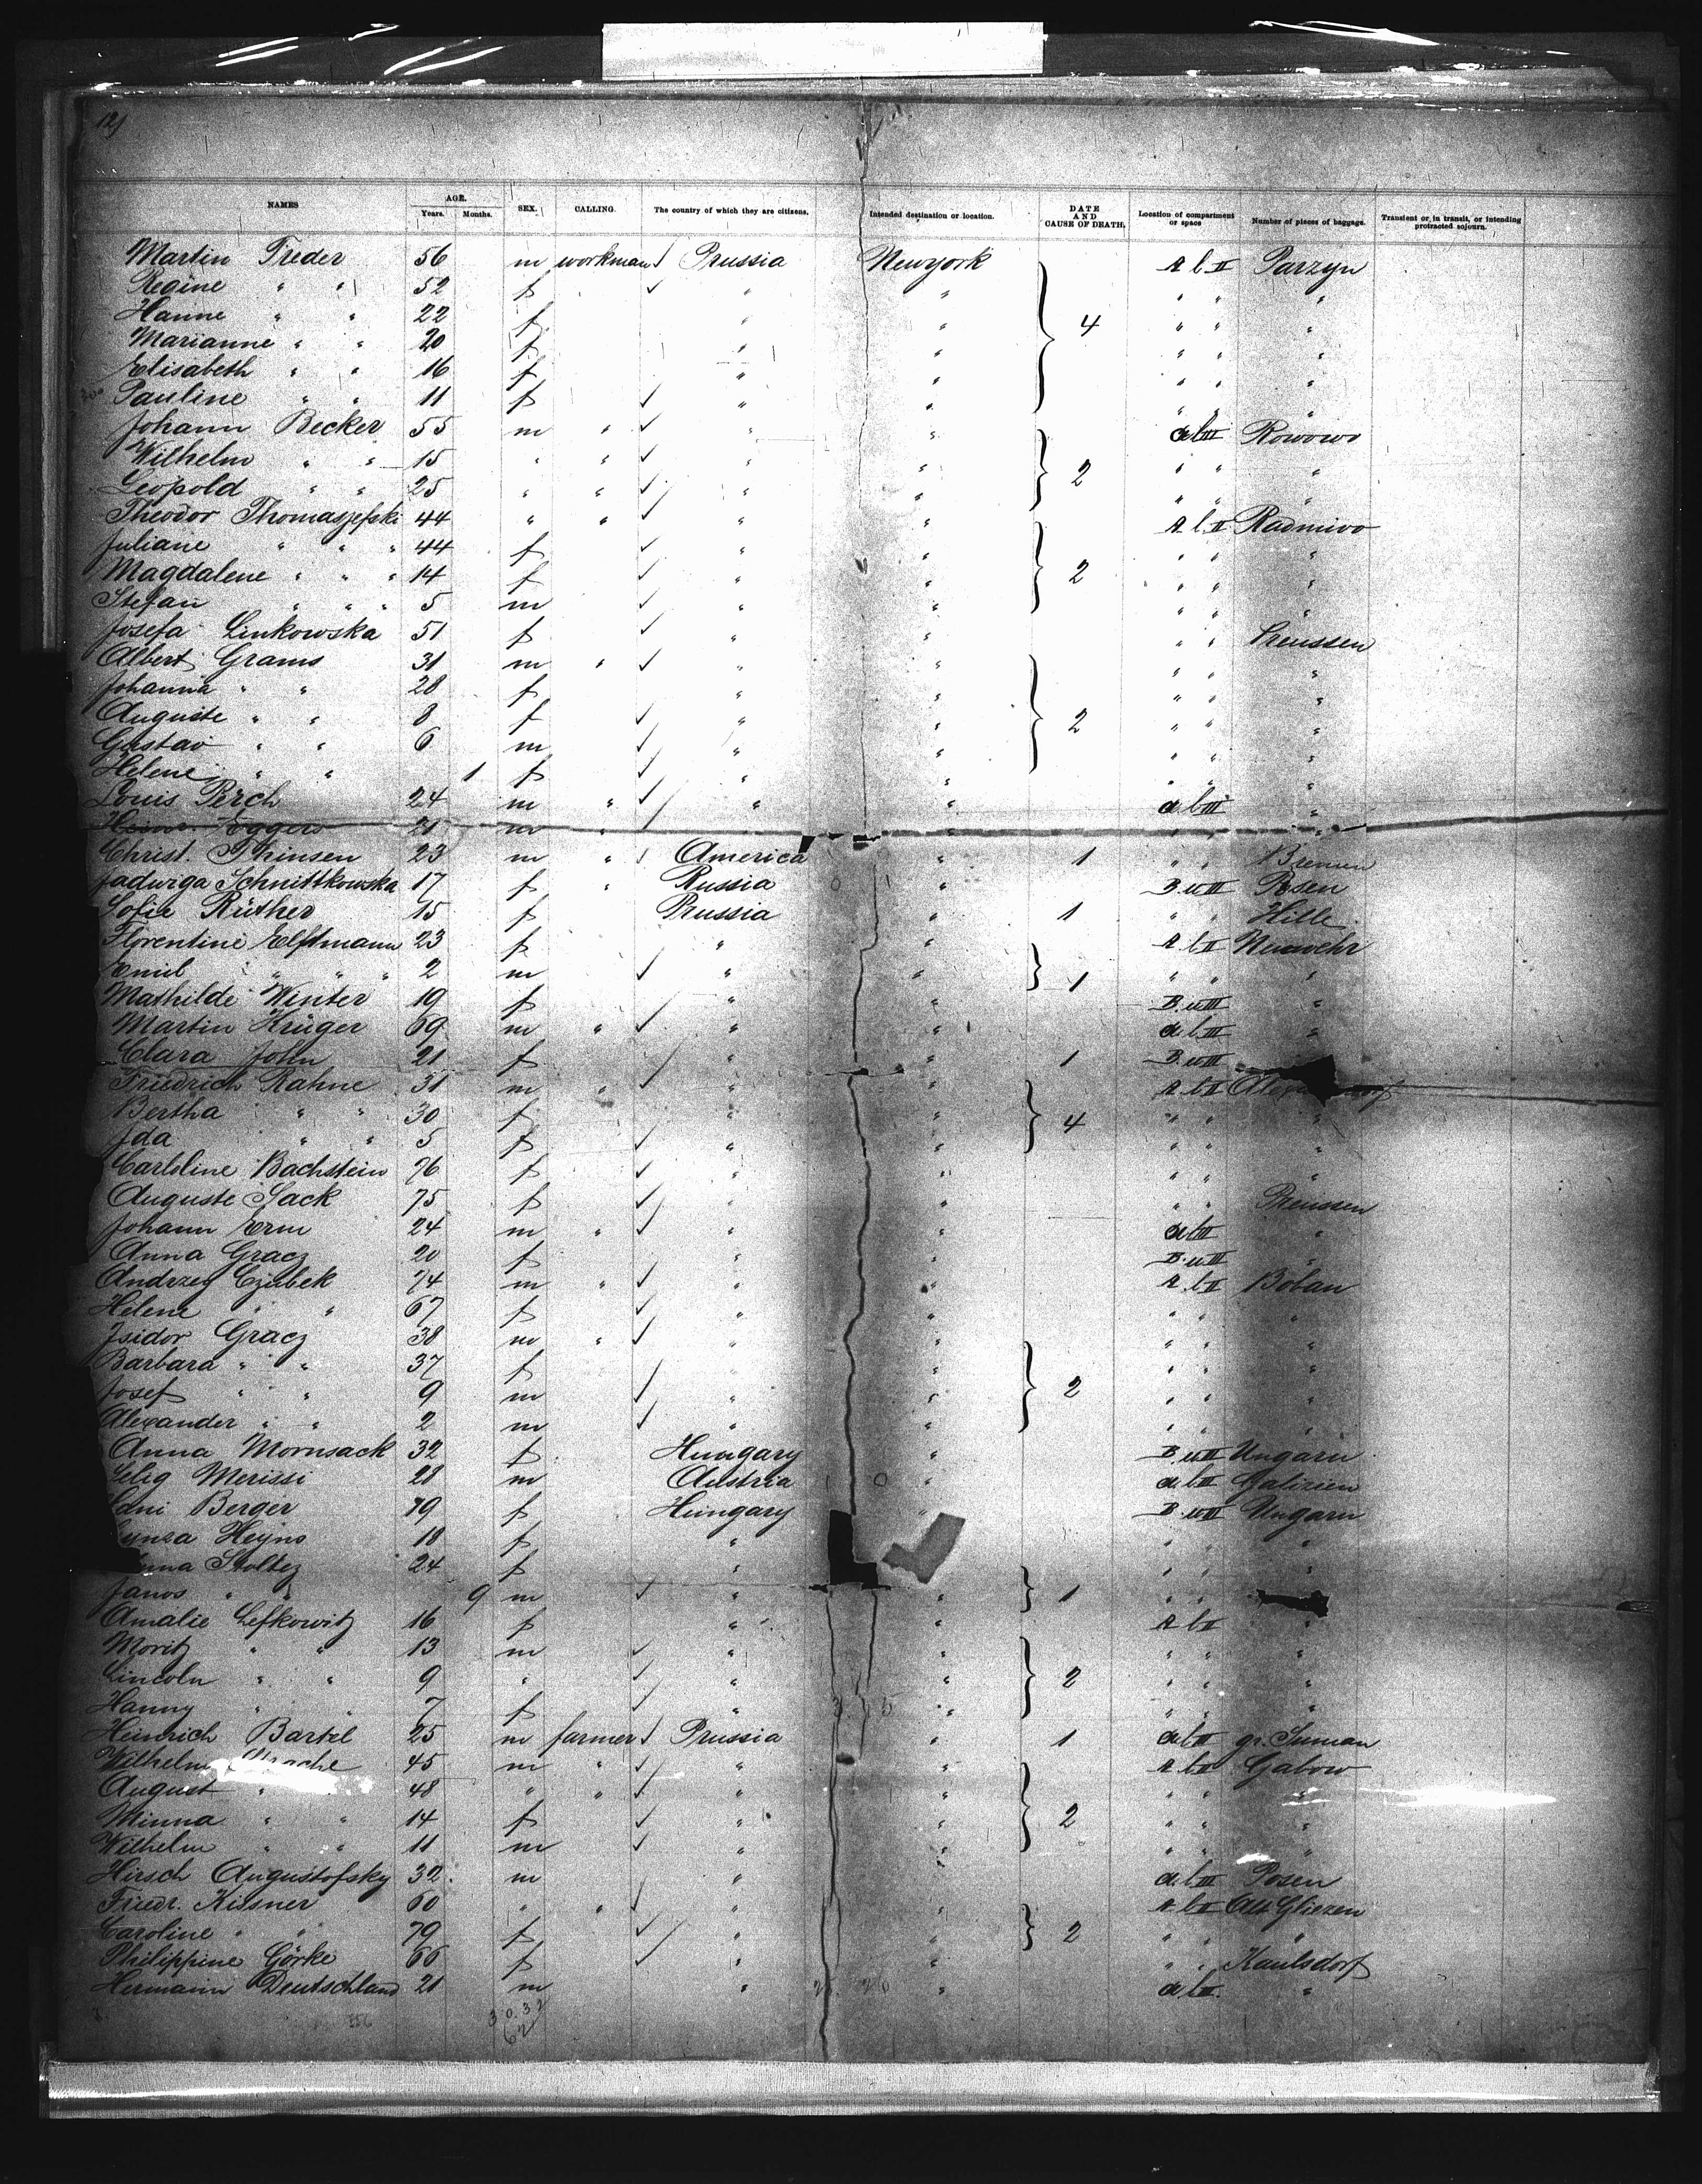 12)
NAMES AGE. Years. Months. SEX. CALLING. The country of which they are citizens. Intended destination or location. DATE AND CAUSE OF DEATH. Location of compartment or space Number of pieces of baggage. Transient or in transit, or intending protracted sojourn.
Martin Treder 56 m workman Prussia Newyork A b II Parzyn
Regine " " 52 f " " " " "
Hanne " " 22 f " " 4 " " "
Marianne " " 20 f " " " " "
Elisabeth " " 16 f " " " "
Pauline " " 11 f " " " " "
Johann Becker 55 m " " " a b III Rowowo
Wilhelm " " 15 " " " " 2 " " "
Leopold " " 25 " " " " " " "
Theodor Thomaszefski 44 " " " " A b II Radmivo
Juliane " " " 44 f " " " " "
Magdalene " " " 14 f " " 2 " " "
Stefan " " " 5 m " " " " "
Josefa Linkowska 51 f " " " " Preussen
Albert Grams 31 m " " " " " "
Johanna " " 28 f " " " " "
Auguste " " 8 f " " 2 " " "
Gustav " " 6 m " " " " "
Helene " " 1 f " " " " "
Louis Perch 24 m " " " a b III "
Heinr. Eggers 21 m " " " " "
Christ. Thinsen 23 m " America " 1 " " Bremen
Jadwiga Schnittkowska 17 f " Russia " B. u III Posen
Sofie Rüther 15 f Prussia " 1 " " Hille
Florentine Elftmann 23 f " " A b II Neuwehr
Emil " " " 2 m " " 1 " " "
Mathilde Winter 19 f " " B. u III "
Martin Krüger 69 m " " " a b III "
Clara John 21 f " " 1 B. u III
Friedrich Rahne 31 m " " " A b II
Bertha " " 30 f " " 4 " " "
Ida " " 5 f " " " " "
Carloline Bachstein 76 f " " " " "
Auguste Sack 75 f " " " " Preussen
Johann Erm 24 m " " " a b III "
Anna Gracz 20 f " " B. u III "
Andrzey Czubek 74 m " " " A b II Boban
Helene " " 67 f " " " " "
Isidor Gracz 38 m " " " " " "
Barbara " " 37 f " " " " "
Josef " " 9 m " " 2 " " "
Alexander " " 2 m " " " " "
Anna Mornsack 32 f Hungary " B. u III Ungarn
Selig Merissi 28 m Austria " a b III Galizien
Berger 19 f Hungary " B. u III Ungarn
Heyns 18 f " " " "
Stoltez 24 f " " " "
Janos " " 9 m " " 1 " "
Amalie Lefkowitz 16 f " " A b II "
Moritz " " 13 m " " " " "
Lincoln " " 9 " " " 2 " " "
Hanny " " 7 f " " " " "
Heinrich Bartel 25 m farmer Prussia " 1 a b III gr. Suman
Wilhelm 45 m " " " A b II Gabow
August " 48 " " " " " " "
Minna " " 14 f " " 2 " " "
Wilhelm " " 11 m " " " " "
Hirsch Augustofsky 32 m " " a b III Posen
Friedr. Kissner 60 " " " " A b II Alt Gliezen
Caroline " " 79 f " " 2 " " "
Philippine Görke 66 f " " " " Kaulsdorf
Hermann Deutschland 21 m " " a b III "
30.32
62